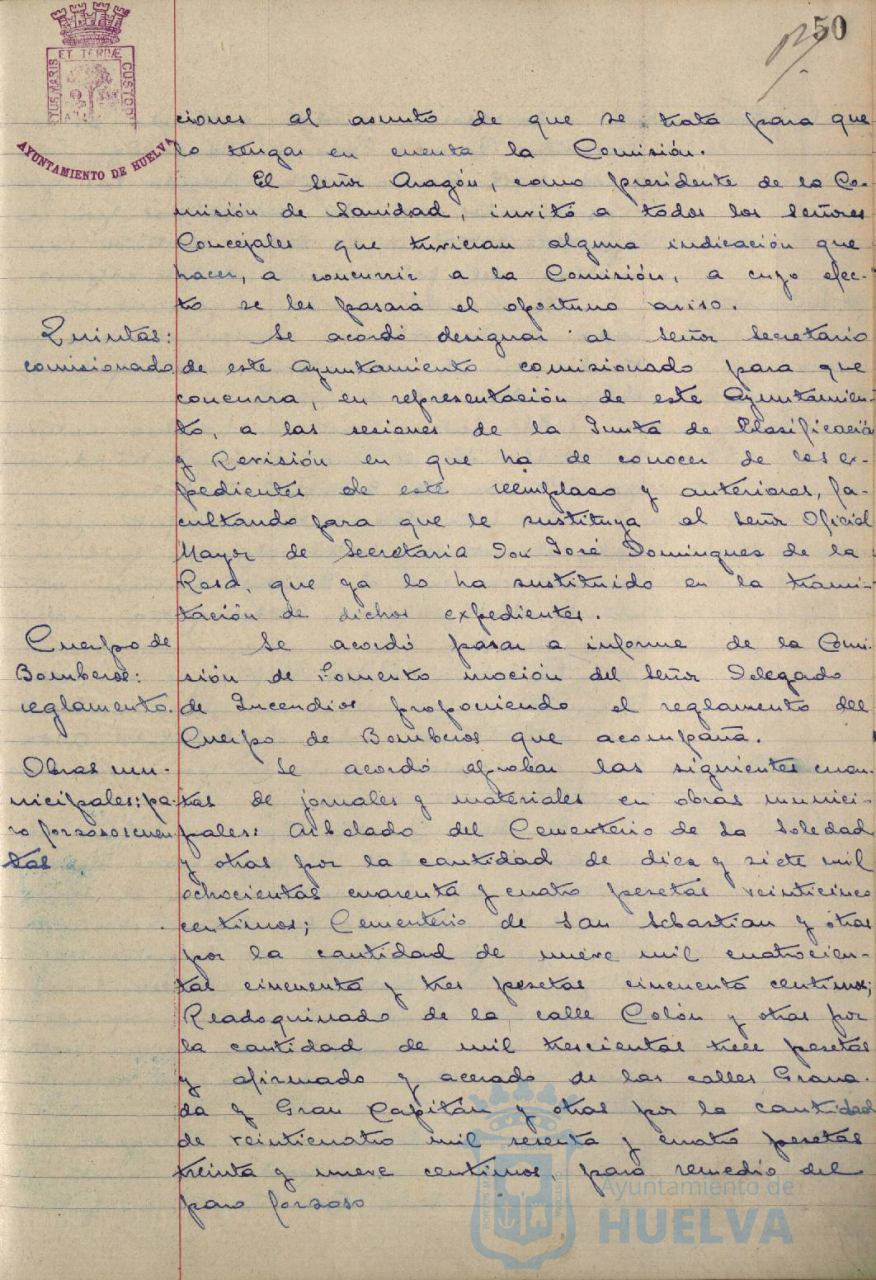 50
ET TERRÆ
CUSTOD
TUS MARIS
AYUNTAMIENTO DE HUELVA
ciones al asunto de que se trata para que
lo tengar en cuenta la Comisión.
El señor Aragón, como presidente de la Co-
misión de Sanidad, invitó a todos los señores
Concejales que tuvieran alguna indicación que
hacer, a concurrir a la Comisión, a cuyo efec-
to se les pasará el oportuno aviso.
Quintas:
comisionado
Se acordó designar al señor Secretario
de este Ayuntamiento comisionado para que
concurra, en representación de este Ayuntamien-
to, a las sesiones de la Junta de Clasificació
y Revisión en que ha de conocer de los ex-
pedientes de este reemplaso y anteriores, fa-
cultando para que le sustituya al señor Oficial
Mayor de Secretaria Don José Domingues de la
Rosa, que ya lo ha sustituido en la trami-
tación de dichos expedientes.
Cuerpo de
Bomberos:
reglamento.
Se acordó pasar a informe de la Comi-
sión de Fomento moción del señor Delegado
de Incendios proponiendo el reglamento del
Cuerpo de Bomberos que acompaña.
Obras mu-
nicipales: pa-
ro forzoso: cuen-
tas
Se acordó aprobar las siguientes cuen-
tas de jornales y materiales en obras munici-
pales: Arbolado del Cementerio de La Soledad
y otras por la cantidad de diez y siete mil
ochocientas cuarenta y cuatro pesetas veinticinco
centimos; Cementerio de San Sebastian y otras
por la cantidad de nueve mil cuatrocien-
tas cincuenta y tres pesetas cincuenta centimos;
Readoquinado de la calle Colón y otras por
la cantidad de mil trescientas trece pesetas
y afirmado y acerado de las calles Grana-
da y Gran Capitán y otras por la cantidad
de veinticuatro mil sesenta y cuatro pesetas
treinta y nueve centimos, para remedio del
paro forzoso
Ayuntamiento de
HUELVA